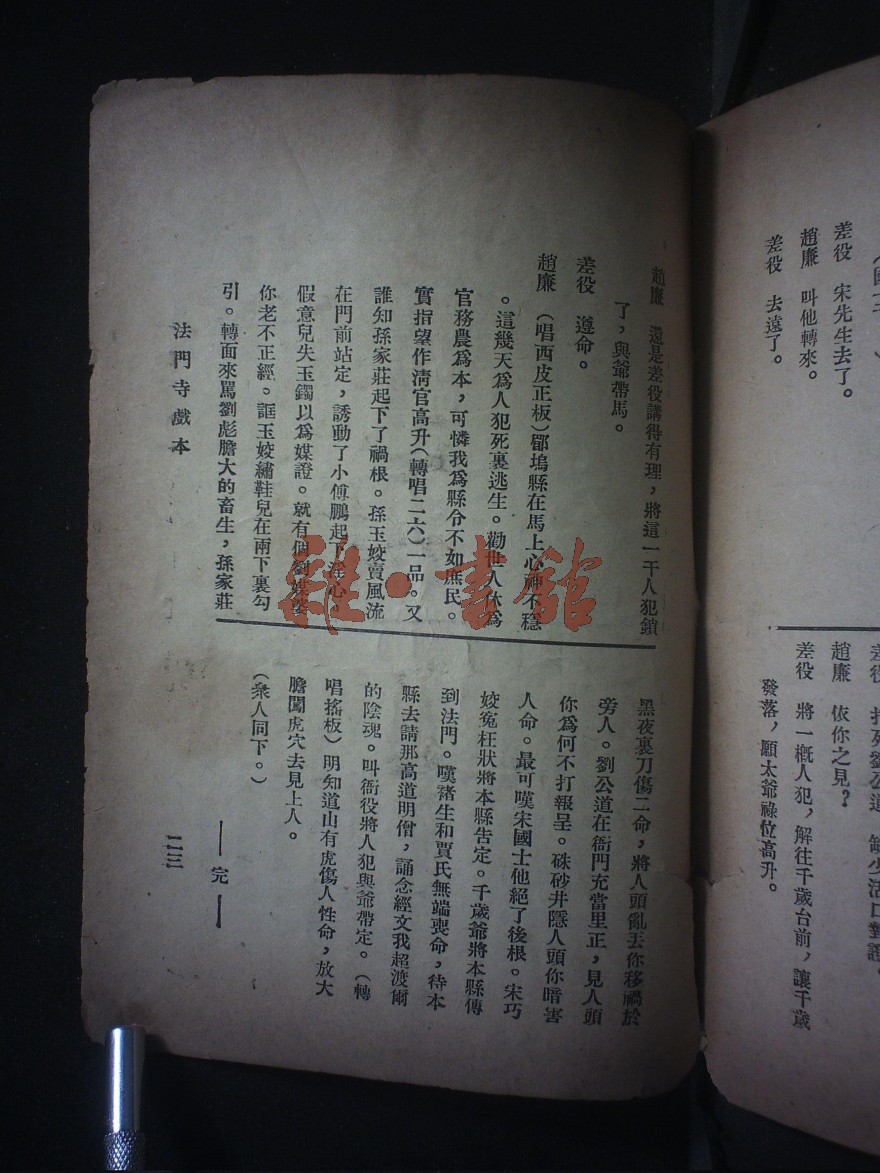 差役　宋先生去了。
趙廉　叫他轉來。
差役　去遠了。
趙廉　依你之見？
差役　將一概人犯，解往千歲台前，讓千歲
發落，願太爺祿位高升。
趙廉　還是差役講得有理，將這一干人犯鎖
了，與爺帶馬。
差役　遵命。
趙廉　（唱西皮正板）郿塢縣在馬上心神不穩
。這幾天爲人犯死裏逃生。勸世人休爲
官務農爲本，可憐我爲縣令不如庶民。
實指望作淸官高升（轉唱二六）一品。又
誰知孫家莊起下了禍根。孫玉姣賣風流
在門前站定，誘動了小傅鵬起下淫心。
假意兒失玉鐲以爲媒證。就有個劉媒婆
你老不正經。誆玉姣繡鞋兒在兩下裏勾
引。轉面來罵劉彪膽大的畜生，孫家莊
黑夜裏刀傷二命，將人頭亂丟你移禍於
旁人。劉公道在衙門充當里正，見人頭
你爲何不打報呈。硃砂井隱人頭你暗害
人命。最可嘆宋國士他絕了後根。宋巧
姣寃枉狀將本縣告定。千歲爺將本縣傳
到法門。嘆褚生和賈氏無端喪命，待本
縣去請那高道明僧，誦念經文我超渡爾
的陰魂。叫衙役將人犯與爺帶定。（轉
唱搖板）明知道山有虎傷人性命，放大
膽闖虎穴去見上人。
（衆人同下。）
——完——
法門寺戲本
二三
雜·書館